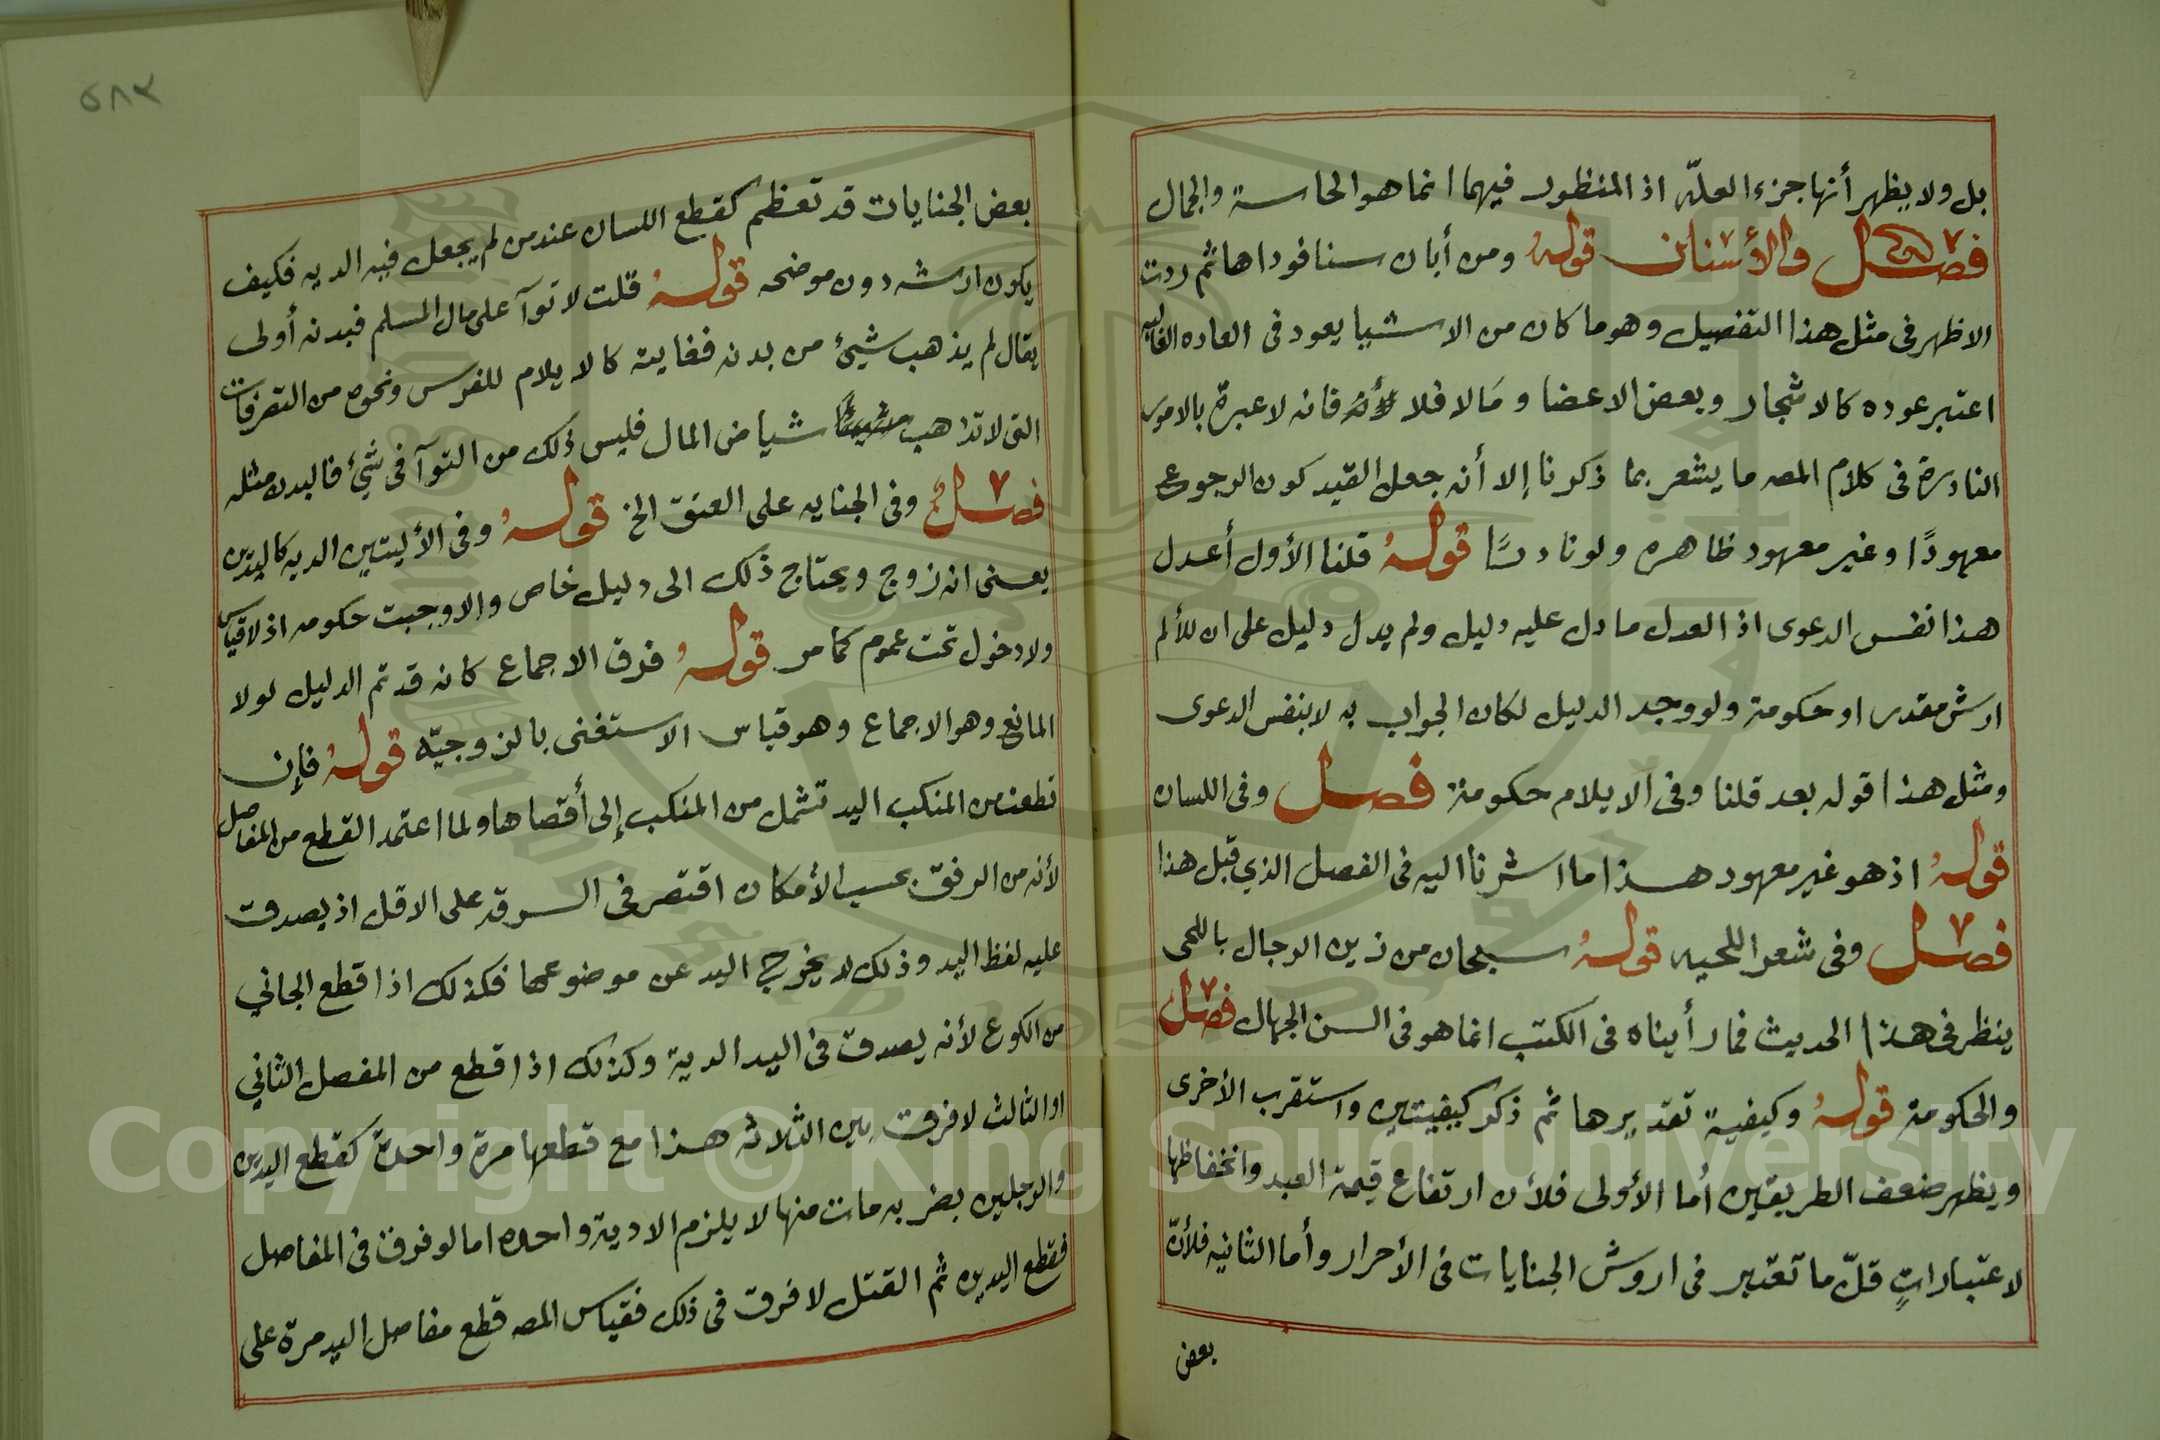 بل ولا يظهر أنها جزء العلّه اذ المنظور فيهما انما هو الحاسة والجمال
فصل في الأسنان قوله ومن أبان سنا فوداها ثم ردت
الاظهر في مثل هذا التفصيل وهو ما كان من الاشيا يعود في العاده الغالبه
اعتبر عوده كالاشجار وبعض الاعضا ومَا لا فلا فانه لا عبرة بالامور
النادرة في كلام المصه ما يشعر بما ذكرنا إلا أنه جعل القيد كون الرجوع
معهودًا وغير معهود ظاهره ولو نادرًا قوله قلنا الأول أعدل
هذا نفس الدعوى اذ العدل ما دل عليه دليل ولم يدل دليل على ان للألم
ارش مقدر او حكومة ولو وجد الدليل لكان الجواب به لا بنفس الدعوى
ومثل هذا قوله بعد قلنا وفي الايلام حكومة فصل وفي اللسان
قوله اذ هو غير معهود هذا ما اشرنا اليه في الفصل الذي قبل هذا
فصل وفي شعر اللحيه قوله سبحان من زين الرجال باللحى
ينظر في هذا الحديث فما رأيناه في الكتب انما هو في السن الجهال فصل
والحكومة قوله وكيفية تقديرها ثم ذكر كيفيتين واستقرب الأخرى
ويظهر ضعف الطريقين أما الأولى فلأن ارتفاع قيمة العبد وانخفاظها
لاعتباراتٍ قلّ ما تعتبر في اروش الجنايات في الأحرار وأما الثانيه فلأنّ
بعض
٥٨٣
بعض الجنايات قد تعظم كقطع اللسان عند من لم يجعل فيه الديه فكيف
يكون ارشه دون موضحه قوله قلت لا توآ على مال المسلم فبدنه أولى
يقال لم يذهب شيئ من بدنه فغايته كالايلام للفرس ونحوه من التصرفات
التي لا تذهب شيا من المال فليس ذلك من التوآ في شيء فالبدن مثله
فصل وفي الجنايه على العنق الخ قوله وفي الأليتين الديه كاليدين
يعني انه زوج ويحتاج ذلك الى دليل خاص والا وجبت حكومه اذ لا قياس
ولا دخول تحت عموم كما مر قوله فرق الاجماع كانه قد تم الدليل لولا
المانع وهو الاجماع وهو قياس الاستغنى بالزوجيّه قوله فإن
قطعت من المنكب اليد تشمل من المنكب إلى أقصاها ولما اعتمد القطع من المفاصل
لأنه من الرفق بحسب الأمكان اقتصر في السرقه على الاقل اذ يصدق
عليه لفظ اليد وذلك لا يخرج اليد عن موضوعها فكذلك اذا قطع الجاني
من الكوع لأنه يصدق في اليد الدية وكذلك اذا قطع من المفصل الثاني
او الثالث لا فرق بين الثلاثه هذا مع قطعها مرة واحدة كقطع اليدين
والرجلين بضربه مات منها لا يلزم الا دية واحده اما لو فرق في المفاصل
فقطع اليدين ثم القتل لا فرق في ذلك فقياس المصه قطع مفاصل اليد مرة على
Copyright © King Saud University